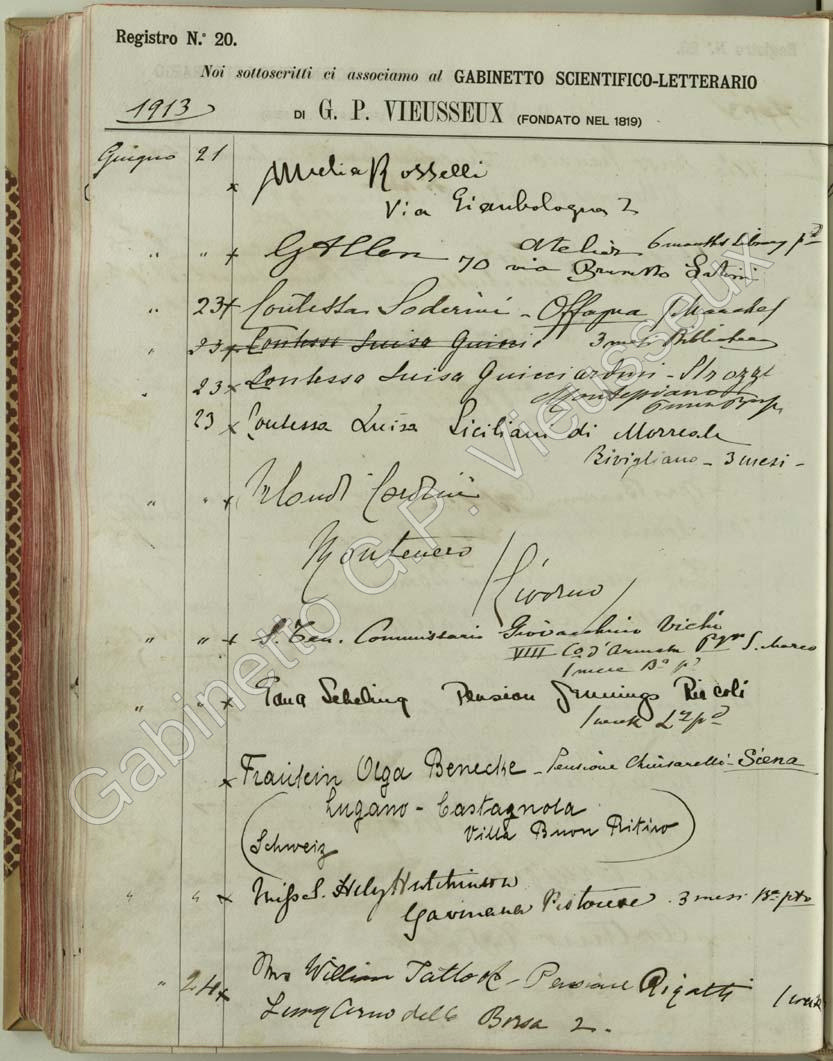 Registro N.° 20.
Noi sottoscritti ci associamo al GABINETTO SCIENTIFICO-LETTERARIO
1913
DI G. P. VIEUSSEUX (FONDATO NEL 1819)
Giugno 21 x Amelia Rosselli
Via Gianbologna 2
" " x G Allen Atelier 6 months Library pd
70 via Brunetto Latini
" 23 x Contessa Soderini - Offagna (Marche)
" 23 x Contessa Luisa Guicci 3 mesi Biblioteca
" 23 x Contessa Luisa Guicciardini-Strozzi
Montepiano
23 x Contessa Luisa Siciliani di Morreale
Bivigliano - 3 mesi -
" " x
Montenero
(Livorno)
" " x S. Ten. Commissario Giovacchino Vichi
VIII Co. d'Armata Pzza S. Marco
1 mese Ba pd
" " x Scheling Pension Jennings Riccoli
1 week pd
x Fräulein Olga Benecke - Pensione Chiusarelli - Siena
(Lugano - Castagnola
Villa Buon Ritiro
Schweiz)
" " x Miss L. Hely Hutchinson
Gavinana Pistoiese. 3 mesi Ba pto
" 24 x Mrs William Tatlock - Pensione Rigatti 1 week
Lung'Arno della Borsa 2.
Gabinetto G.P. Vieusseux